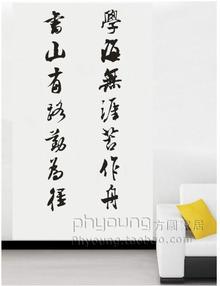 學海無涯苦作舟
書山有路勤為徑
phyoung方圆家居
Phyoung.taobao.com